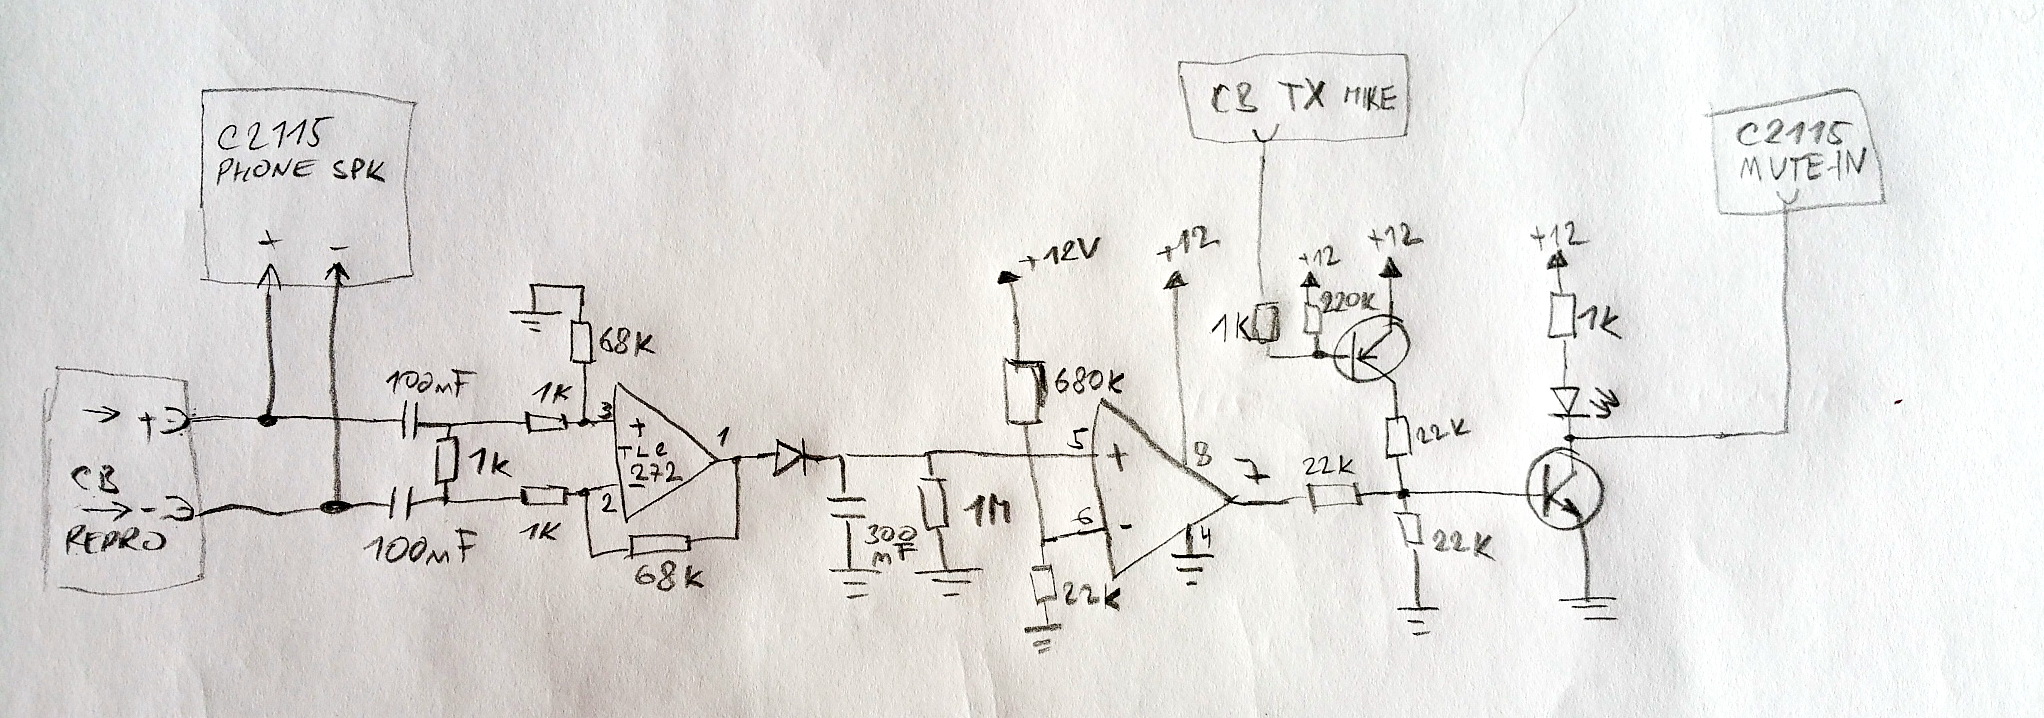 C2115
PHONE SPK
+
-
→ +
CB
→ -
REPRO
100mF
100mF
1K
1K
1K
68K
3
+
TLC
272
2
1
68K
300
mF
1M
+12V
680K
5
+
6
-
22K
+12
8
4
7
CB TX MIKE
1K
+12
220K
+12
22K
22K
22K
+12
1K
C2115
MUTE-IN